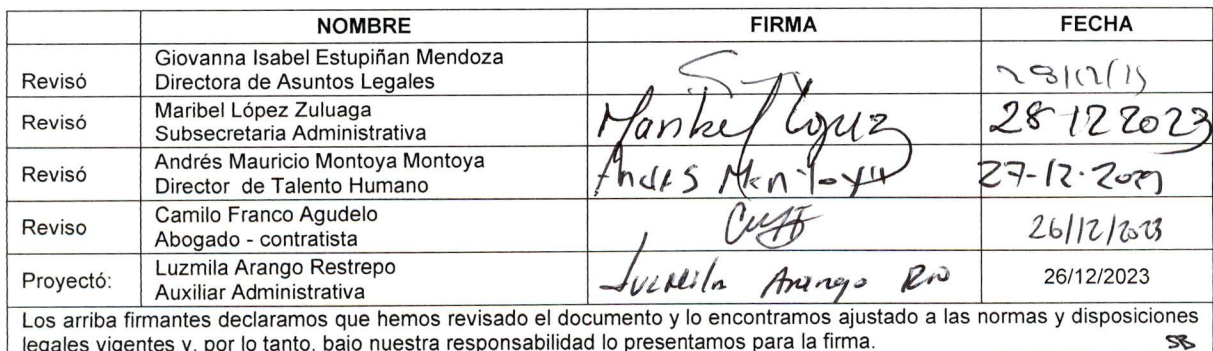 NOMBRE FIRMA FECHA
Giovanna Isabel Estupiñan Mendoza
Revisó Directora de Asuntos Legales
Maribel López Zuluaga
Revisó Subsecretaria Administrativa Maribel López 28 12 2023
Andrés Mauricio Montoya Montoya
Revisó Director de Talento Humano Andres Montoya 27-12-2023
Camilo Franco Agudelo
Reviso Abogado - contratista 26/12/2023
Luzmila Arango Restrepo
Proyectó: Auxiliar Administrativa Luzmila Arango 26/12/2023
Los arriba firmantes declaramos que hemos revisado el documento y lo encontramos ajustado a las normas y disposiciones
legales vigentes y, por lo tanto, bajo nuestra responsabilidad lo presentamos para la firma.